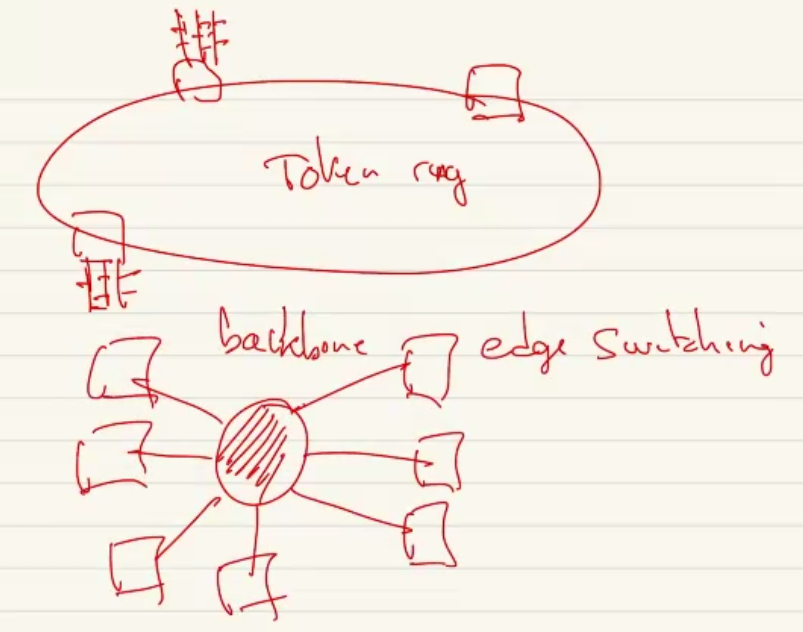 Token ring
backbone edge switching